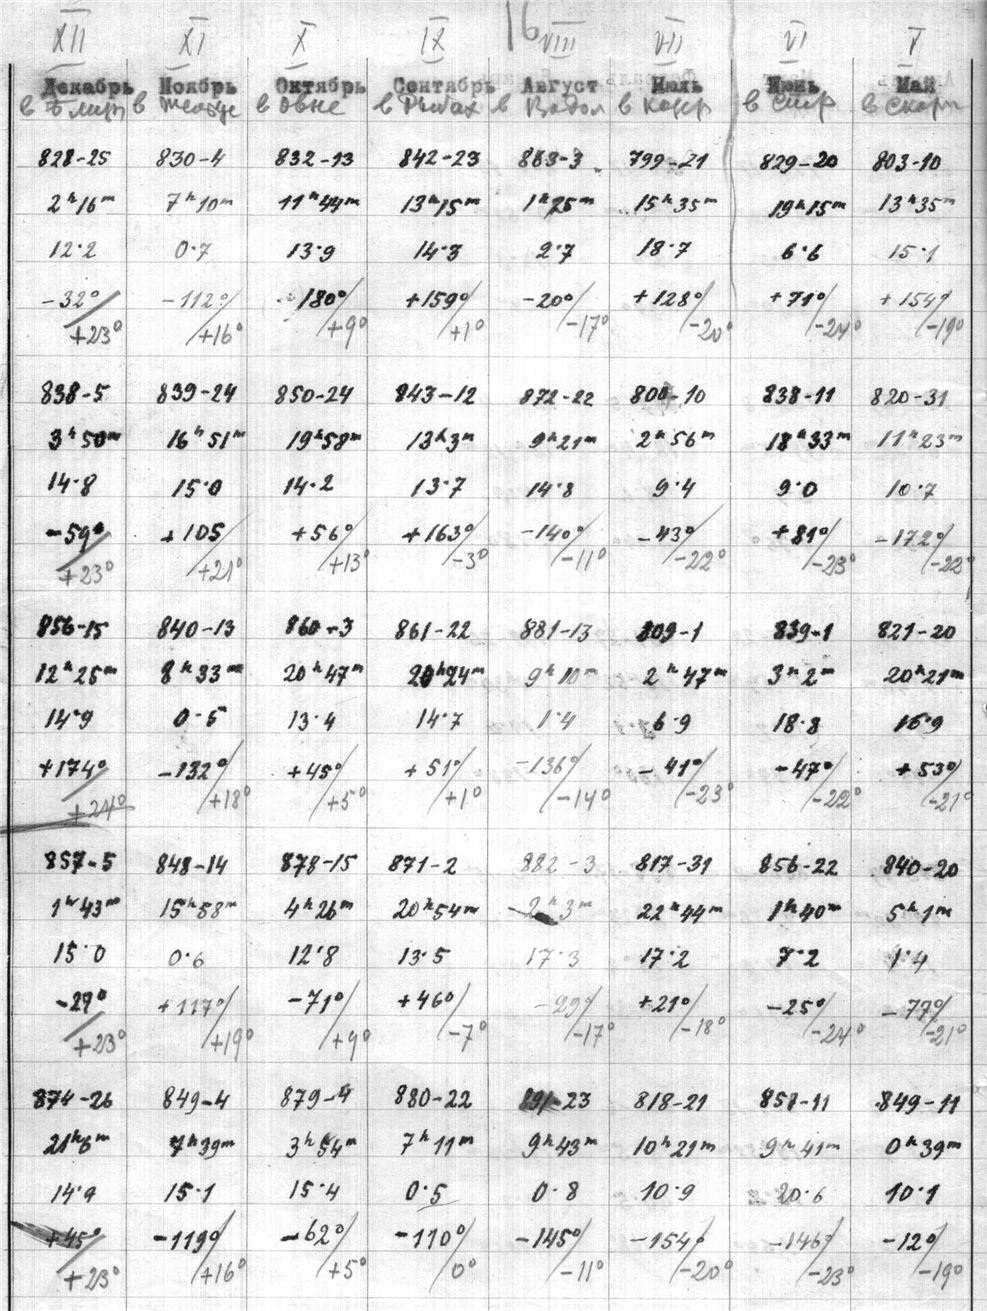 16
XII XI X IX VIII VII VI V
Декабрь Ноябрь Октябрь Сентябрь Август Июль Июнь Май
в в в Овне в Рыбах в Водол в в в Скорп
828-25 830-4 832-13 842-23 863-3 799-21 829-20 803-10
2ʰ16ᵐ 7ʰ10ᵐ 11ʰ44ᵐ 13ʰ15ᵐ 1ʰ25ᵐ 15ʰ35ᵐ 19ʰ15ᵐ 13ʰ35ᵐ
12·2 0·7 13·9 14·3 2·7 18·7 6·6 15·1
-32°/ -112°/ 180°/ +159°/ -20°/ +128°/ +71°/ +154°/
+23° +16° +9° +1° -17° -20° -24° -19°
838-5 839-24 850-24 843-12 872-22 808-10 838-11 820-31
3ʰ50ᵐ 16ʰ51ᵐ 19ʰ58ᵐ 13ʰ3ᵐ 9ʰ21ᵐ 2ʰ56ᵐ 18ʰ33ᵐ 11ʰ23ᵐ
14·8 15·0 14·2 13·7 14·8 9·4 9·0 10·7
-59°/ +105/ +56°/ +163°/ -140°/ -43°/ +81°/ -172°/
+23° +21° +13° -3° -11° -22° -23° -22°
856-15 840-13 860-3 861-22 881-13 809-1 839-1 821-20
12ʰ25ᵐ 8ʰ33ᵐ 20ʰ47ᵐ 20ʰ24ᵐ 9ʰ10ᵐ 2ʰ47ᵐ 3ʰ2ᵐ 20ʰ21ᵐ
14·9 0·5 13·4 14·7 1·4 6·9 18·8 16·9
+174°/ -132°/ +45°/ +51°/ -136°/ -41°/ -47°/ +53°/
+24° +18° +5° +1° -14° -23° -22° -21°
857-5 848-14 878-15 871-2 882-3 817-31 856-22 840-20
1ʰ43ᵐ 15ʰ58ᵐ 4ʰ26ᵐ 20ʰ54ᵐ 2ʰ3ᵐ 22ʰ44ᵐ 1ʰ40ᵐ 5ʰ1ᵐ
15·0 0·6 12·8 13·5 17·3 17·2 7·2 1·4
-29°/ +117°/ -71°/ +46°/ -29°/ +21°/ -25°/ -77°/
+23° +19° +9° -7° -17° -18° -24° -21°
874-26 849-4 879-4 880-22 891-23 818-21 858-11 849-11
21ʰ6ᵐ 7ʰ39ᵐ 3ʰ54ᵐ 7ʰ11ᵐ 9ʰ43ᵐ 10ʰ21ᵐ 9ʰ41ᵐ 0ʰ39ᵐ
14·9 15·1 15·4 0·5 0·8 10·9 20·6 10·1
+45°/ -119°/ -62°/ -110°/ -145°/ -154°/ -146°/ -12°/
+23° +16° +5° 0° -11° -20° -23° -19°